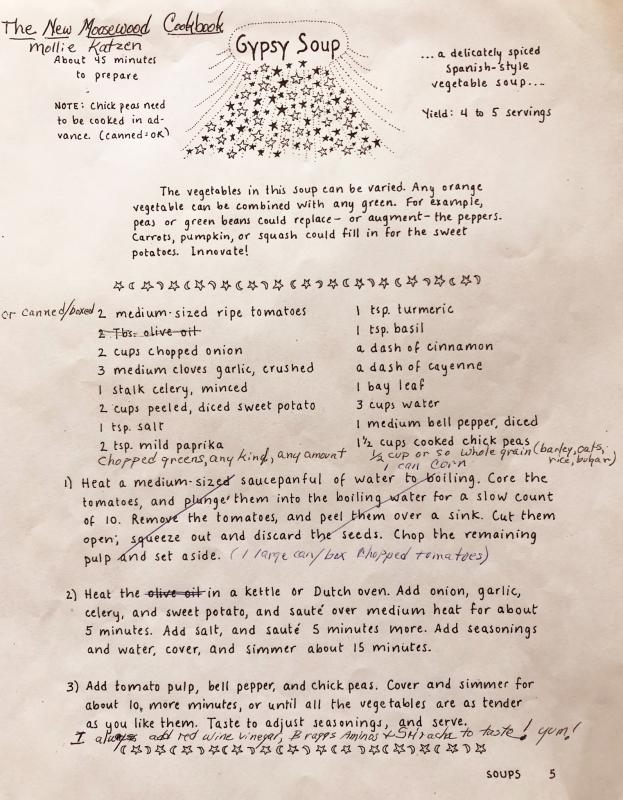 The New Moosewood Cookbook
Mollie Katzen
About 45 minutes
to prepare
NOTE: Chick peas need
to be cooked in ad-
vance. (canned=OK)
Gypsy Soup
...a delicately spiced
Spanish-style
vegetable soup....
Yield: 4 to 5 servings
The vegetables in this soup can be varied. Any orange
vegetable can be combined with any green. For example,
peas or green beans could replace— or augment— the peppers.
Carrots, pumpkin, or squash could fill in for the sweet
potatoes. Innovate!
or canned/boxed
2 medium-sized ripe tomatoes
2 Tbs. olive oil
2 cups chopped onion
3 medium cloves garlic, crushed
1 stalk celery, minced
2 cups peeled, diced sweet potato
1 tsp. salt
2 tsp. mild paprika
Chopped greens, any kind, any amount
1 tsp. turmeric
1 tsp. basil
a dash of cinnamon
a dash of cayenne
1 bay leaf
3 cups water
1 medium bell pepper, diced
1½ cups cooked chick peas
½ cup or so whole grain (barley, oats,
rice, bulgar)
1 can corn
1) Heat a medium-sized saucepanful of water to boiling. Core the
tomatoes, and plunge them into the boiling water for a slow count
of 10. Remove the tomatoes, and peel them over a sink. Cut them
open; squeeze out and discard the seeds. Chop the remaining
pulp and set aside. (1 large can/box Chopped tomatoes)
2) Heat the olive oil in a kettle or Dutch oven. Add onion, garlic,
celery, and sweet potato, and sauté over medium heat for about
5 minutes. Add salt, and sauté 5 minutes more. Add seasonings
and water, cover, and simmer about 15 minutes.
3) Add tomato pulp, bell pepper, and chick peas. Cover and simmer for
about 10 more minutes, or until all the vegetables are as tender
as you like them. Taste to adjust seasonings, and serve.
I always add red wine vinegar, Braggs Aminos + Sriracha to taste! yum!
SOUPS 5